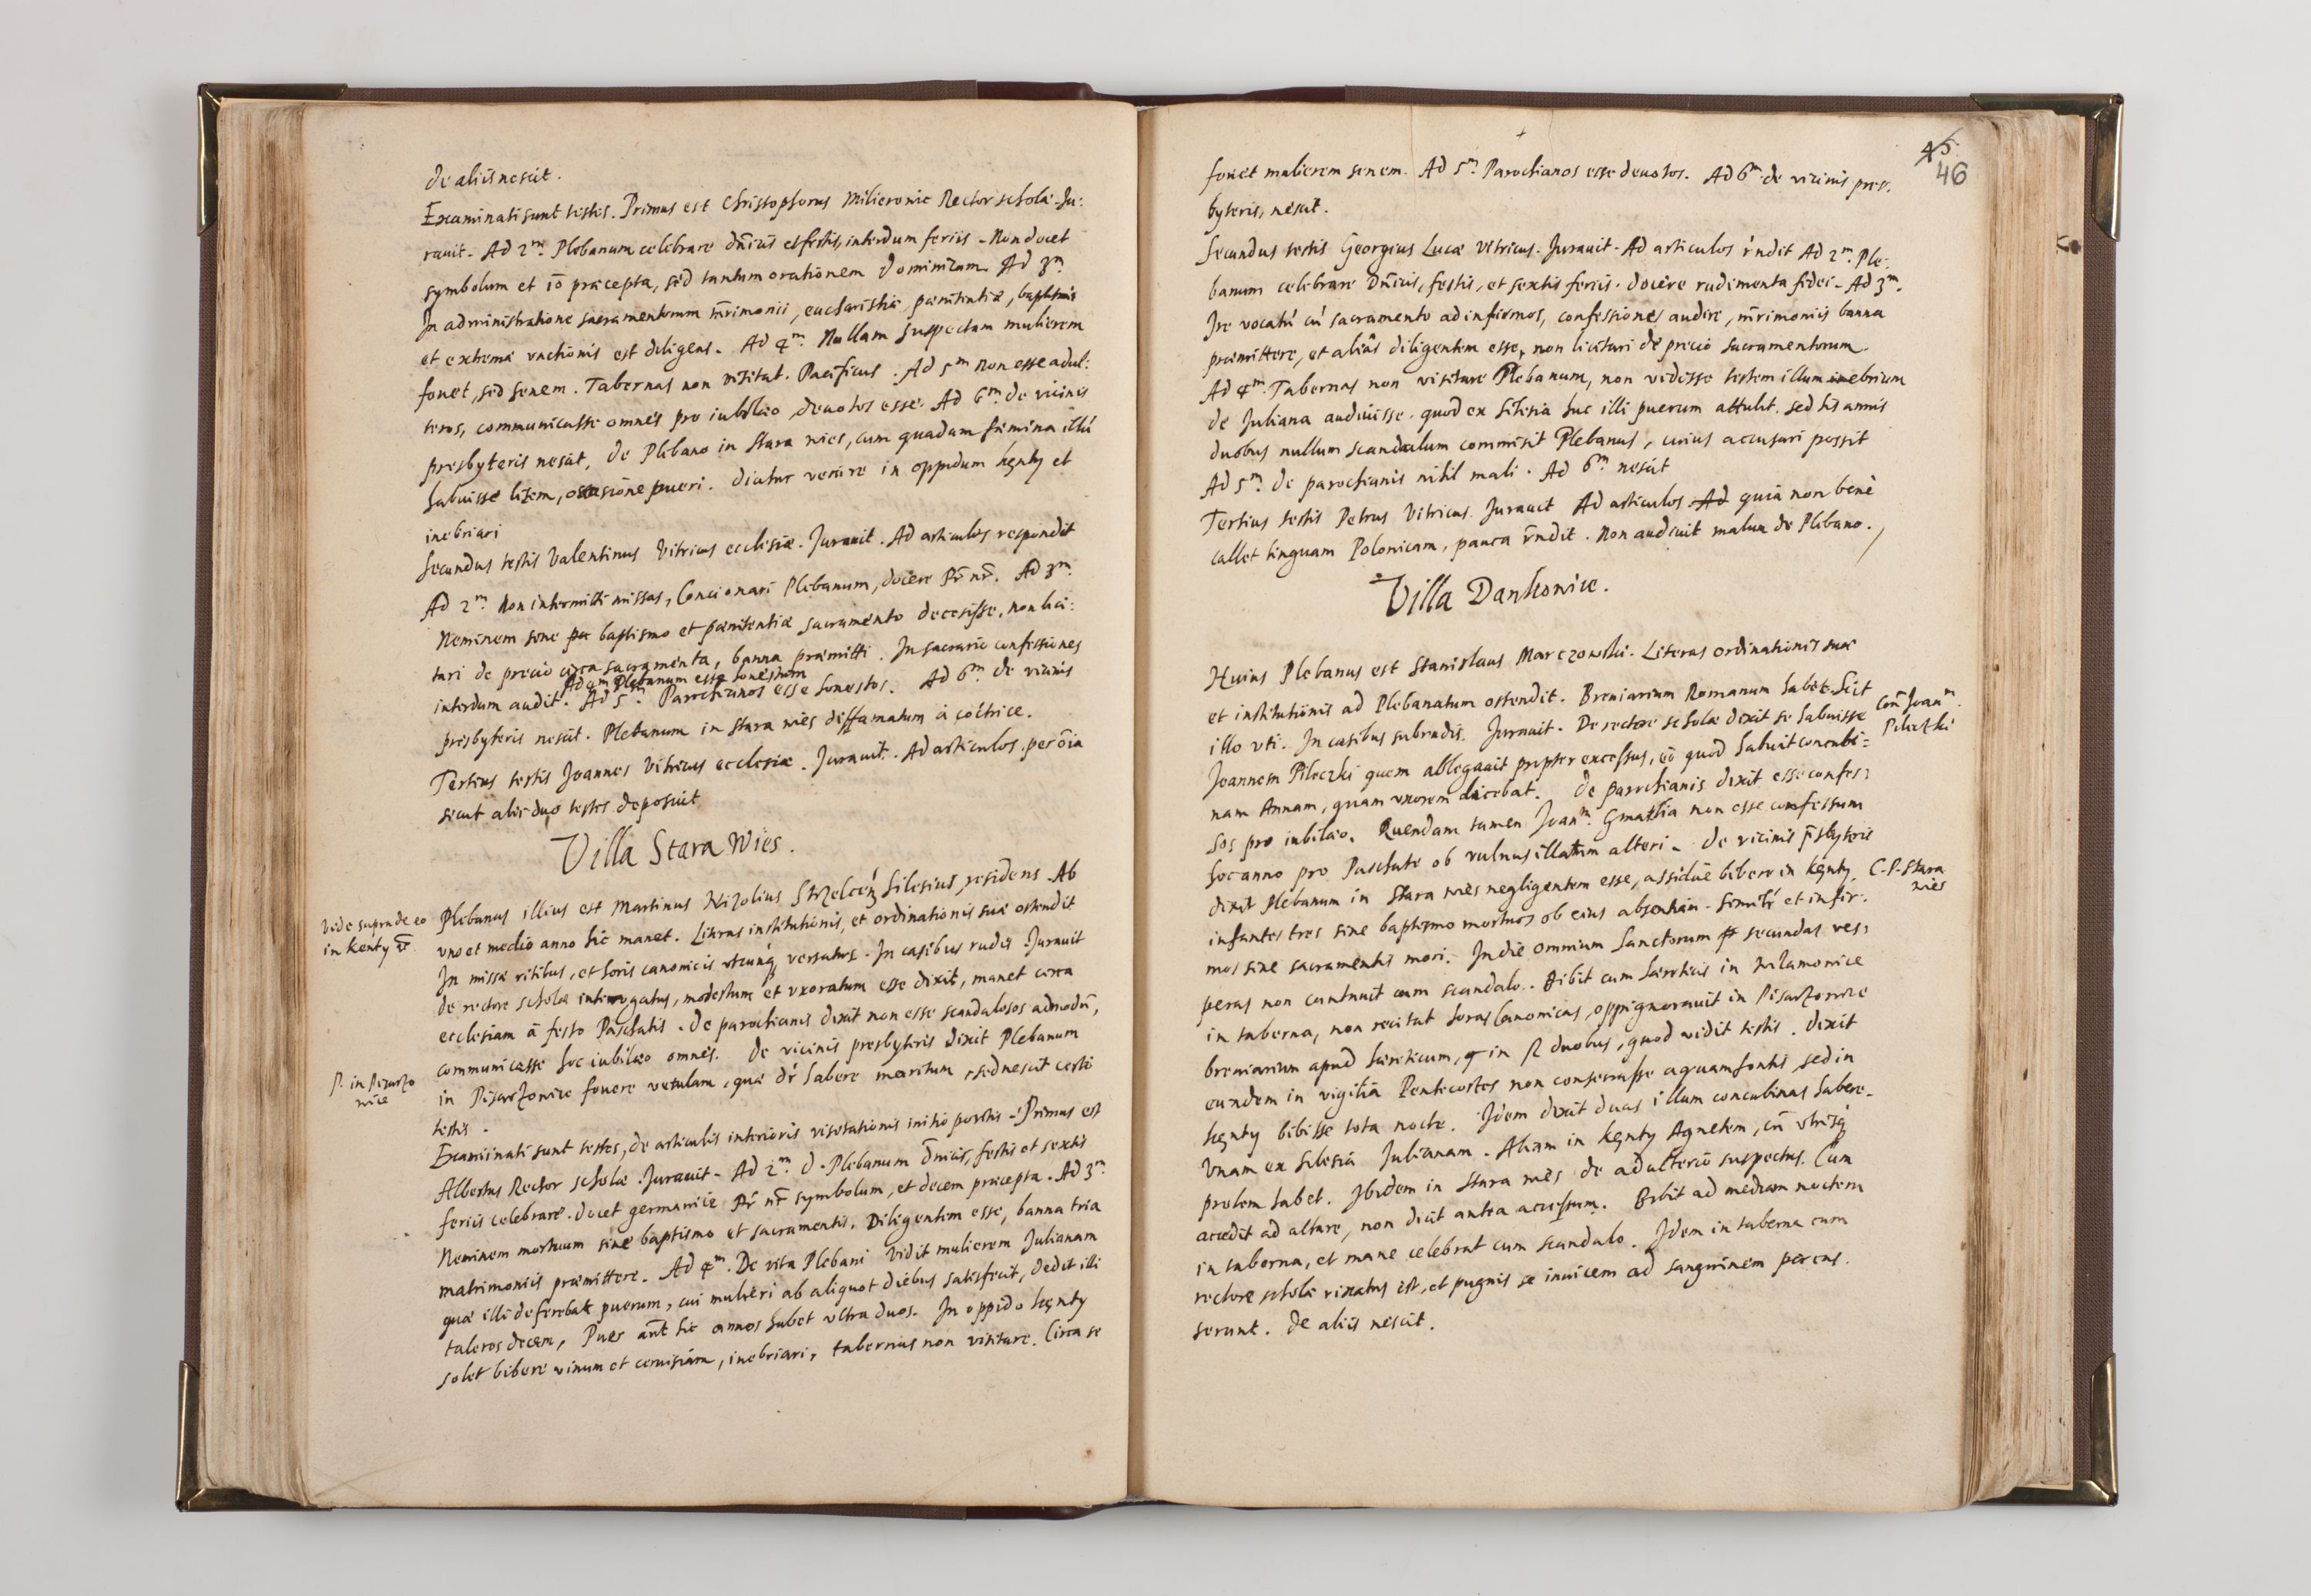 de aliis nescit.
Examinati sunt testes. Primus est Christophorus Milieronic Rector scholæ. Ju:
rauit. Ad 2m. Plebanum celebrare dnicis et festis, interdum feriis. Non docet
symbolum et io præcepta, sed tantum orationem dominicam. Ad 3m
In administratione sacramentorum mrimonii, eucharistiæ, pænitentiæ, baptismi
et extremæ vnctionis est diligens. Ad 4m. Nullam suspectam mulierem
fouet, sed senem. Tabernas non visitat. Pacificus. Ad 5m non esse adul:
teros, communicasse omnes pro iubilæo, deuotos esse. Ad 6m. de vicinis
presbyteris nescit, de Plebano in Stara wies, cum quadam fæmina illū
habuisse litem, occasione pueri. dicitur venire in oppidum kęnty et
inebriari
Secundus testis Valentinus Vitricus ecclesiæ. Jurauit. Ad articulos respondit
Ad 2m. Non intermitti missas, Concionari Plebanum, docere Pr nr. Ad 3m.
Neminem sine baptismo et pænitentiæ sacramento decessisse, non lici:
tari de precio circa sacramenta, banna præmitti. In sacrario confessiones
Ad 4m Plebanum esse honestum
interdum audit. Ad 5m. Parochianos esse honestos. Ad 6m. de vicinis
presbyteris nescit. Plebanum in Stara wies diffamatum à coctrice.
Tertius testis Joannes Vitricus ecclesiæ. Jurauit. Ad articulos per oia
sicut alii duo testes deposuit
Villa Stara Wies.
Vide supra de eo
in Kenty
Plebanus illius est Martinus Nizolius Silesius residens. Ab
vno et medio anno hic manet. Literas institutionis, et ordinationis suæ ostendit
In missæ ritibus, et horis canonicis vtcunq versatus. In casibus rudis. Jurauit
de rectore scholæ interrogatus, modestum et vxoratum esse dixit, manet circa
ecclesiam à festo Paschatis. de parochianis dixit non esse scandalosos admodū,
communicasse hoc iubilæo omnes. de vicinis presbyteris dixit Plebanum
P. in Pisarzo
wice
in Pisarzowice fouere vetulam, quæ dr habere maritum, sed nescit certo
testis.
Examinati sunt testes, de articulis interioris visitationis initio positis. Primus est
Albertus Rector scholæ. Jurauit. Ad 2m. d. Plebanum dnicis, festis et sextis
feriis celebrare. docet germanicè Pr nr symbolum, et decem præcepta. Ad 3m.
Neminem mortuum sine baptismo et sacramentis. Diligentem esse, banna tria
matrimoniis præmittere. Ad 4m. De vita Plebani Vidit mulierem Julianam
quæ illi deferebat puerum, cui mulieri ab aliquot diebus satisfecit, dedit illi
taleros decem, Puer aut hic annos habet vltra duos. In oppido kęnty
solet bibere vinum et ceruisiam, inebriari, tabernas non visitare. Circa se
45
46
fouet mulierem senem. Ad 5m. Parochianos esse deuotos. Ad 6m. de vicinis pres.
byteris, nescit.
Secundus testis Georgius Lucæ Vitricus. Jurauit. Ad articulos rndit Ad 2m. Ple:
banum celebrare Dnicis, festis, et sextis feriis. docere rudimenta fidei. Ad 3m.
Ire vocatū cū sacramento ad infirmos, confessiones audire, mrimoniis banna
præmittere, et aliàs diligentem esse, non licitari de precio sacramentorum.
Ad 4m. Tabernas non visitare Plebanum, non vidisse testem illum inebrium
de Juliana audiuisse. quod ex Silesia huc illi puerum attulit. sed his annis
duobus nullum scandalum commisit Plebanus, cuius accusari possit
Ad 5m. de parochianis nihil mali. Ad 6m. nescit
Tertius testis Petrus Vitricus. Jurauit Ad articulos. Ad quia non benè
callet linguam Polonicam, pauca rndit. Non audiuit malum de Plebano.
Villa Dankowice.
Huius Plebanus est Stanislaus Marczowski. Literas ordinationis suæ
et institutionis ad Plebanatum ostendit. Breuiarium Romanum habet. Scit
Con Joanm.
Pileczki
illo vti. In casibus subrudis. Jurauit. De rectore scholæ dixit se habuisse
Joannem Pileczki quem ablegauit propter excessus, eo quod habuit concubi:
nam Annam, quam vxorem dicebat. de parochianis dixit esse confes:
sos pro iubilæo. Quendam tamen Joanm. non esse confessum
hoc anno pro Paschate ob vulnus illatum alteri. de vicinis psbyteris
C. P. Stara
wies
dixit Plebanum in Stara wies negligentem esse, assiduè bibere in kęnty,
infantes tres sine baptismo mortuos ob eius absentiam. Similr et infir.
mos sine sacramentis mori. In die omnium Sanctorum secundas ves:
peras non cantauit cum scandalo. bibit cum hæreticis in Wilamowice
in taberna, non recitat horas Canonicas, oppignorauit in Pisarzowice
breuiarium apud hæreticum, in duobus, quod vidit testis. dixit
eundem in vigilia Pentecostes non consecrasse aquam fontis, sed in
kęnty bibisse tota nocte. Idem dixit duas illum concubinas habere.
Vnam ex Silesia Julianam. Aliam in kęnty Agnetem, cū vtrisq
prolem habet. Ibidem in Stara wies de adulterio suspectus. Cum
accedit ad altare, non dicit antea accessum. Bibit ad mediam noctem
in taberna, et mane celebrat cum scandalo. Idem in taberna cum
rectore scholæ rixatus est, et pugnis se inuicem ad sanguinem percus.
serunt. de aliis nescit.